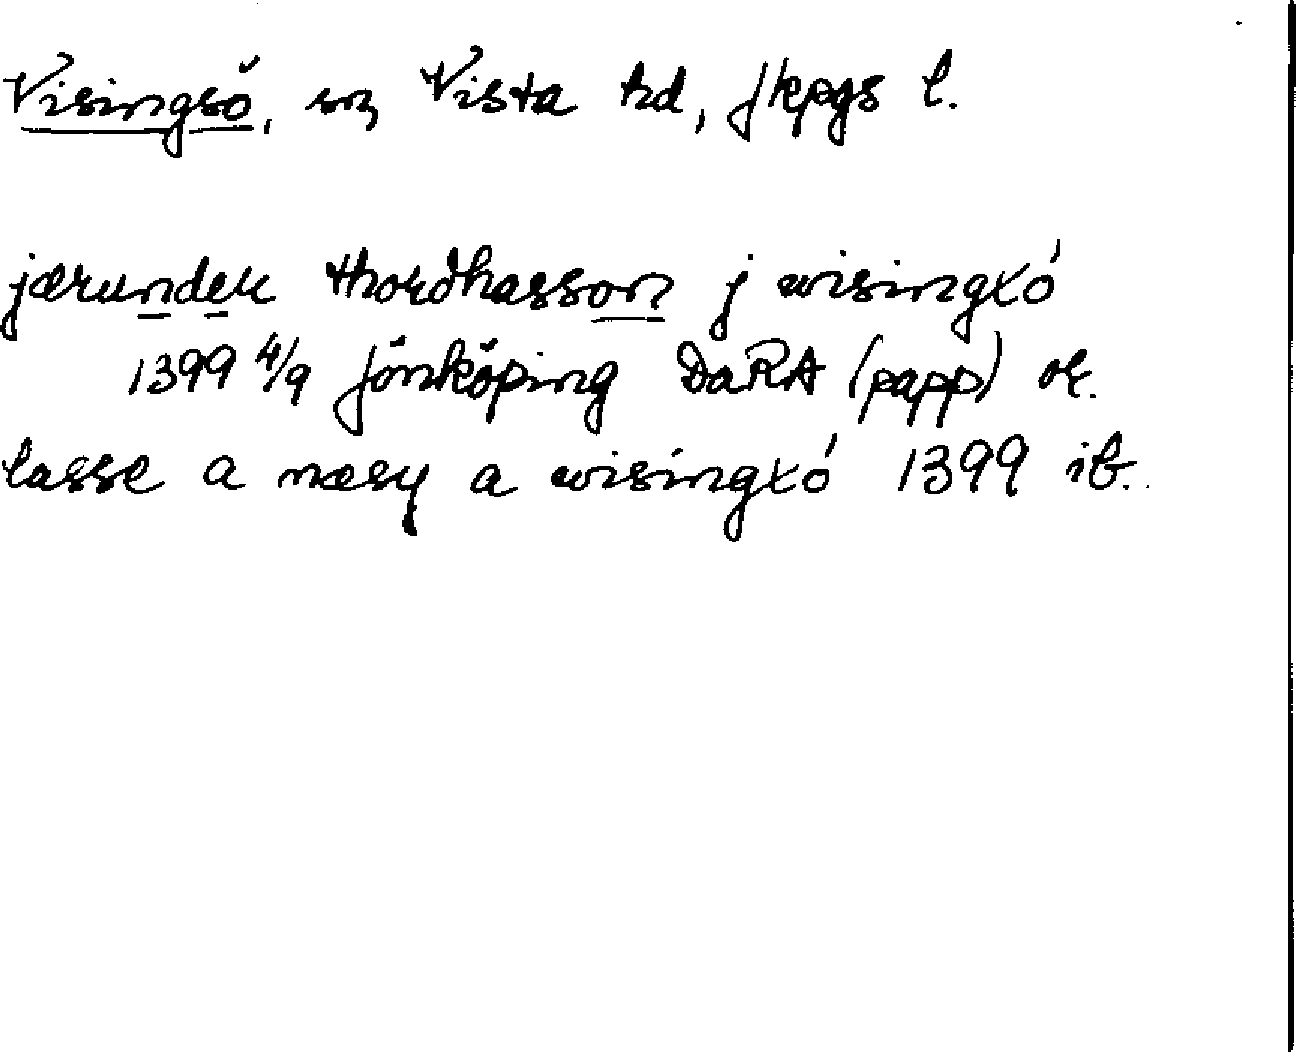 Visingsö, sn, Vista hd, Jkpgs l.
jærunder thordhasson j wisingxó
1399 4/9 Jönköping DaRA (papp) or.
lasse a næsy a wisingxó 1399 ib.